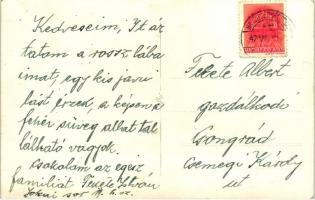 Kedveseim, Itt ár
tatom a rossz lába
imat, egy kis javu
lást érzed, a képsen a
fehér süveg alatt tal
lálható vagyok.
csokolam az egész
familiát Fekete István
Fekete Albert
gazdálkodó
Csongrád
Csemegi Károly
ut